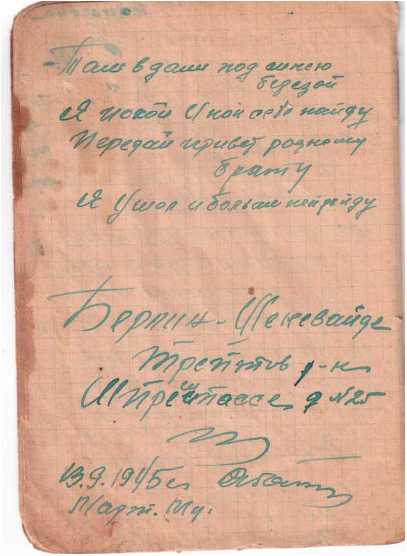 - Там вдали под синею
березой
Я покой себе найду
Передай привет родному
брату
Я ушол и больше не прийду
Берлин - Шеневайде
Трейптов р-н
д №25
13.9.1945г